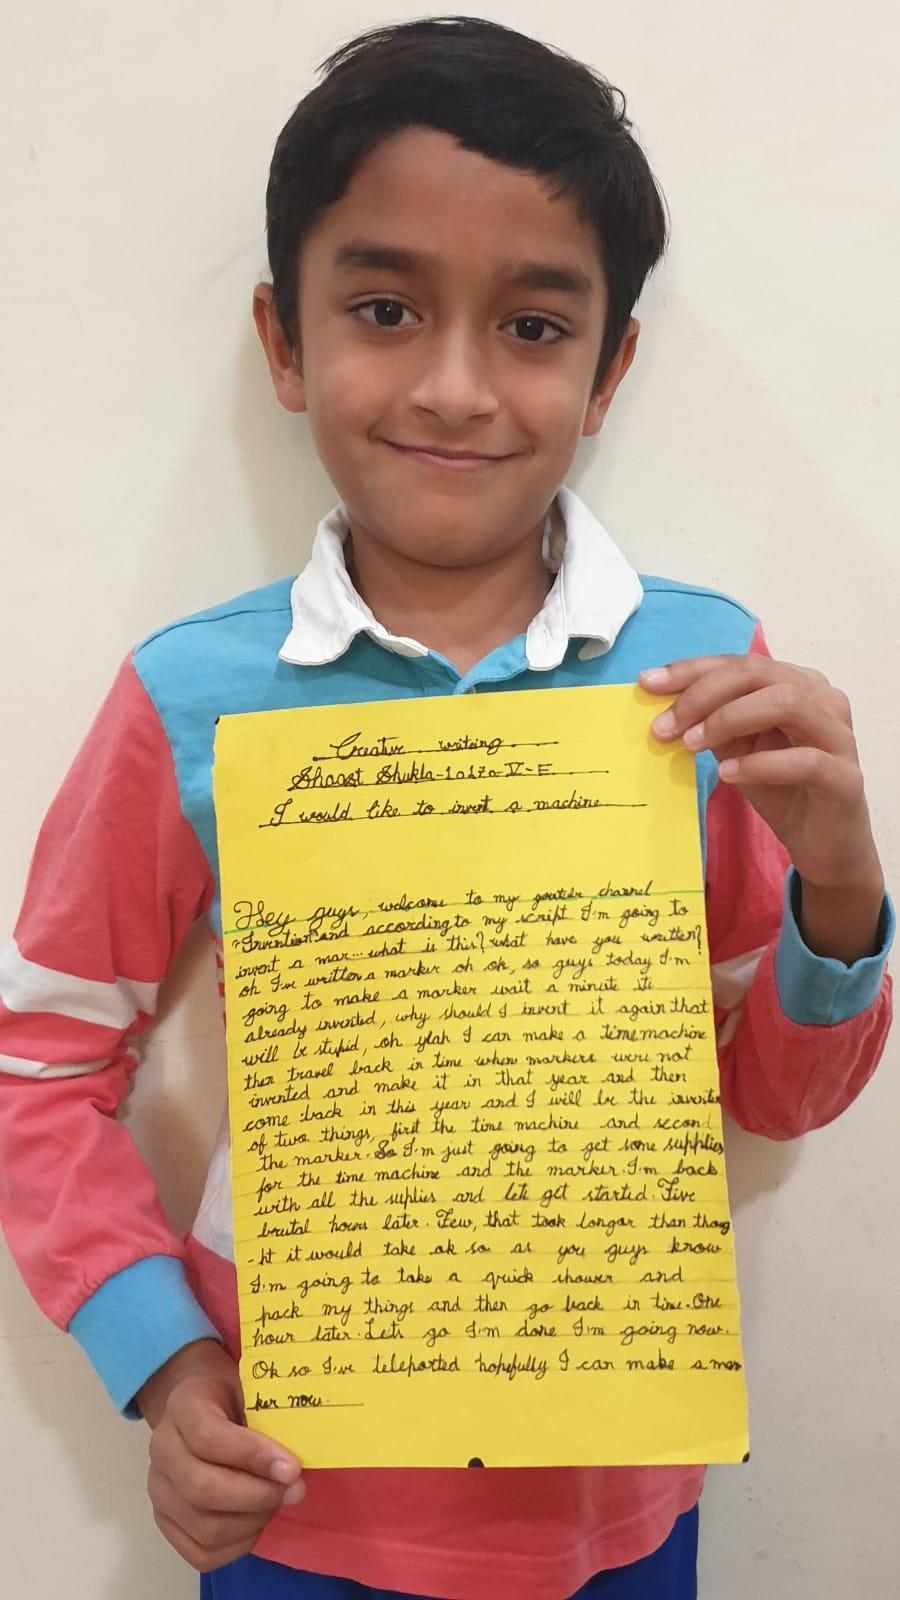 Creative writing
Shaast Shukla-10170-V-E
I would like to invent a machine
Hey guys, welcome to my channel
"Invention" and according to my script I'm going to
invent a mar... what is this? what have you written?
oh I've written a marker oh ok, so guys today I'm
going to make a marker wait a minute its
already invented, why should I invent it again that
will be stupid, oh yeah I can make a time machine
then travel back in time when markers were not
invented and make it in that year and then
come back in this year and I will be the inventer
of two things, first the time machine and second
the marker. So I'm just going to get some supplies
for the time machine and the marker. I'm back
with all the suplies and lets get started. Five
brutal hours later. Few, that took longer than thoug
-ht it would take ok so as you guys know
I'm going to take a quick shower and
pack my things and then go back in time. One
hour later. Lets go I'm done I'm going now.
Ok so I've teleported hopefully I can make a mar
ker now.